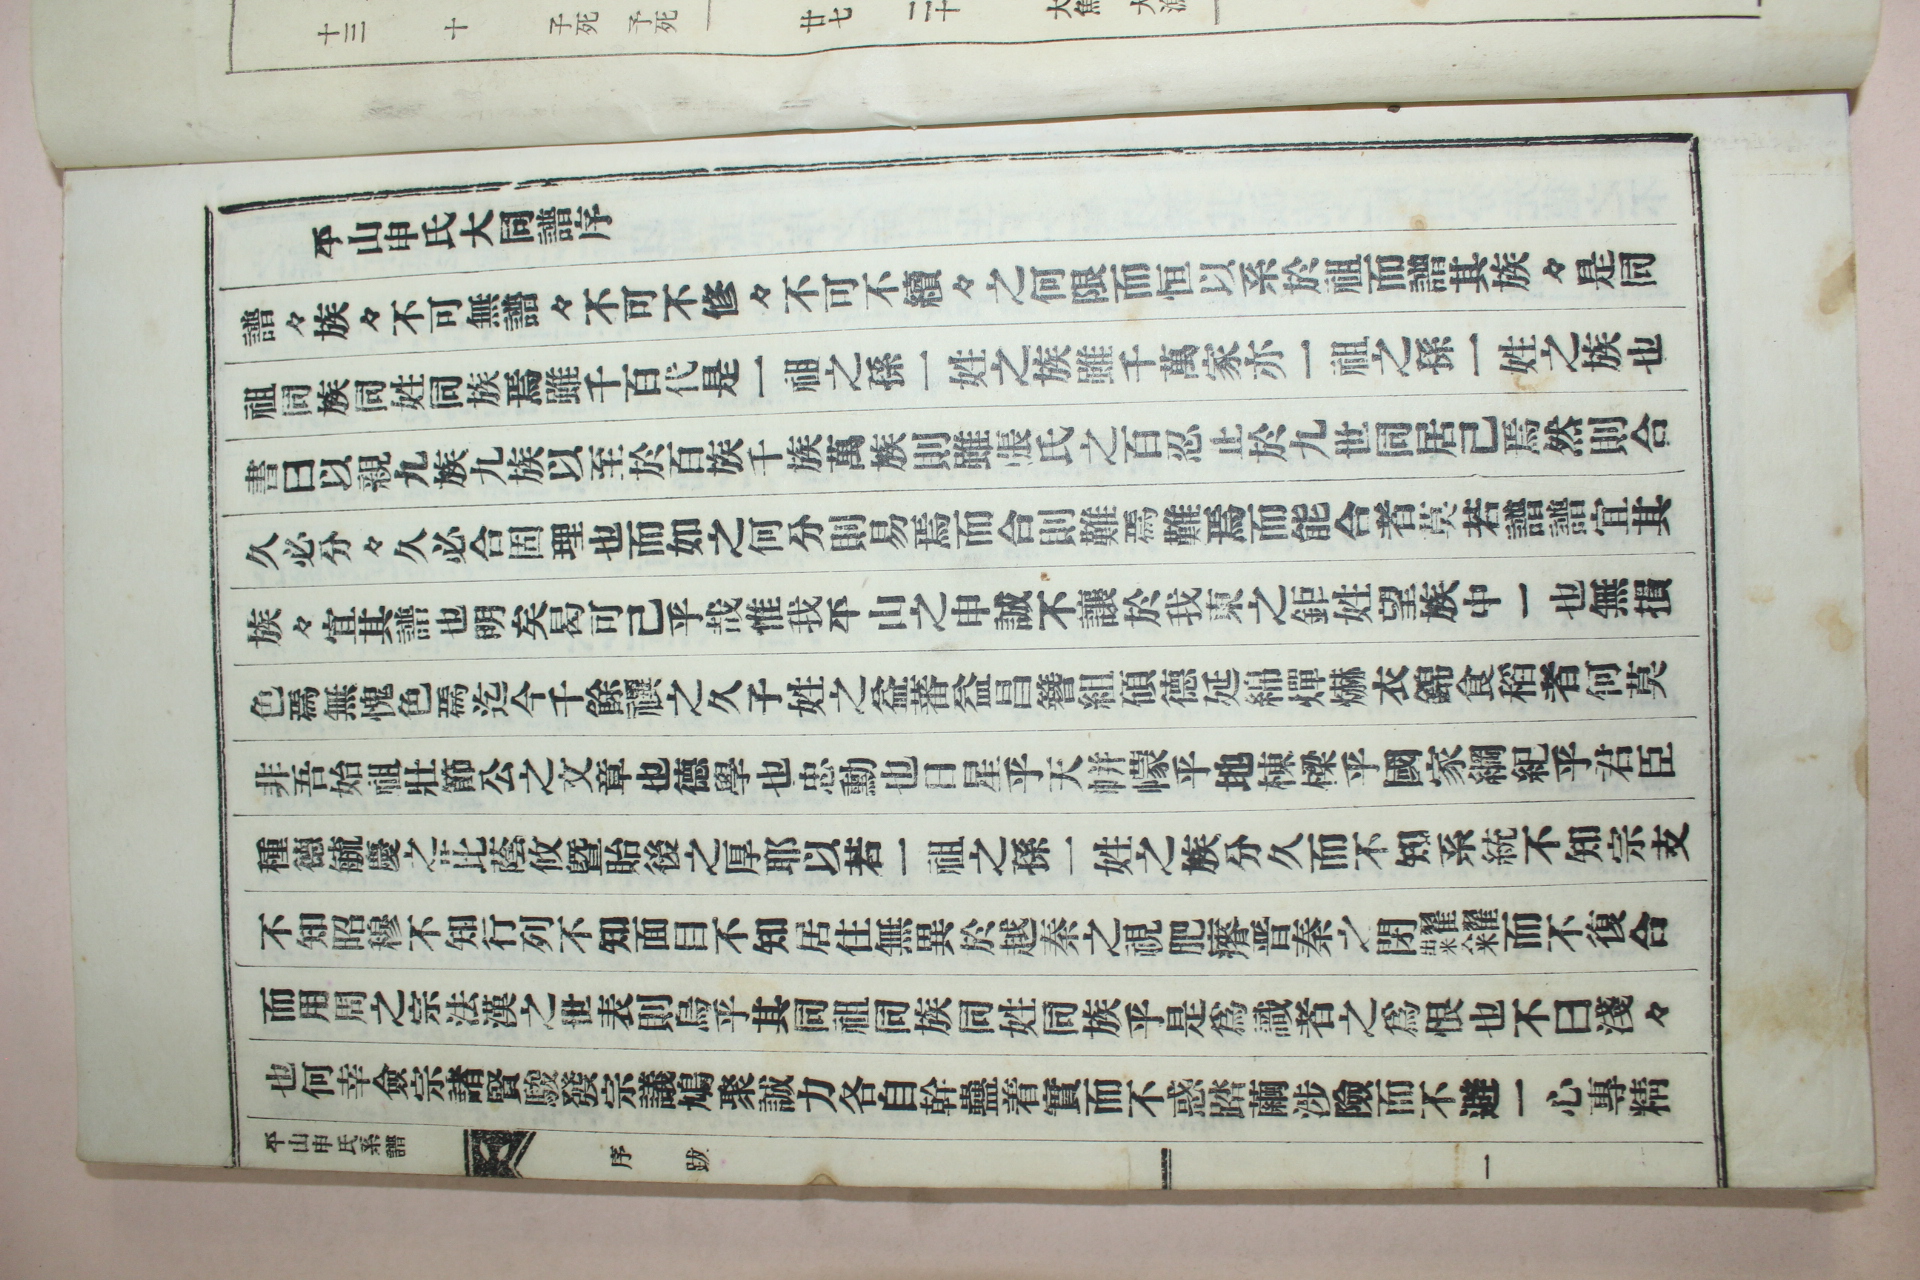 平山申氏大同譜序
譜々族々不可無譜々不可不修々不可不續々之何限而恒以系於祖而譜其族々是同
祖同族同姓同族焉雖千百代是一祖之孫一姓之族雖千萬家亦一祖之孫一姓之族也
書曰以親九族九族以至於百族千族萬族則雖張氏之百忍止於九世同居已焉然則合
久必分々久必合固理也而如之何分則易焉而合則難焉難焉而能合者莫若譜譜宜其
族々宜其譜也明矣曷可已乎哉惟我平山之申誠不讓於我東之鉅姓望族中一也無損
色焉無愧色焉迄今千餘禩之久子姓之益蕃益昌簪組碩德延綿燀爀衣錦食稻者何莫
非吾始祖壯節公之文章也德學也忠勳也日星乎天帡幪乎地棟樑乎國家綱紀乎君臣
種德毓慶之庇蔭攸曁貽後之厚耶以若一祖之孫一姓之族分久而不知系統不知宗支
不知昭穆不知行列不知面目不知居住無異於越秦之視肥瘠晋秦之閉糶糴而不復合
而用周之宗法漢之世表則烏乎其同祖同族同姓同族乎是爲識者之爲恨也不曰淺々
也何幸僉宗諸賢駿發宗議鳩聚誠力各自幹蠱着實而不惑踏繭涉險而不避一心專精
平山申氏系譜
序
跋
一
十三
十
子死
予死
廿七
二十